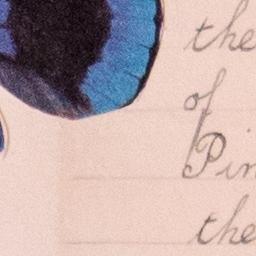 the
of
Pin
the